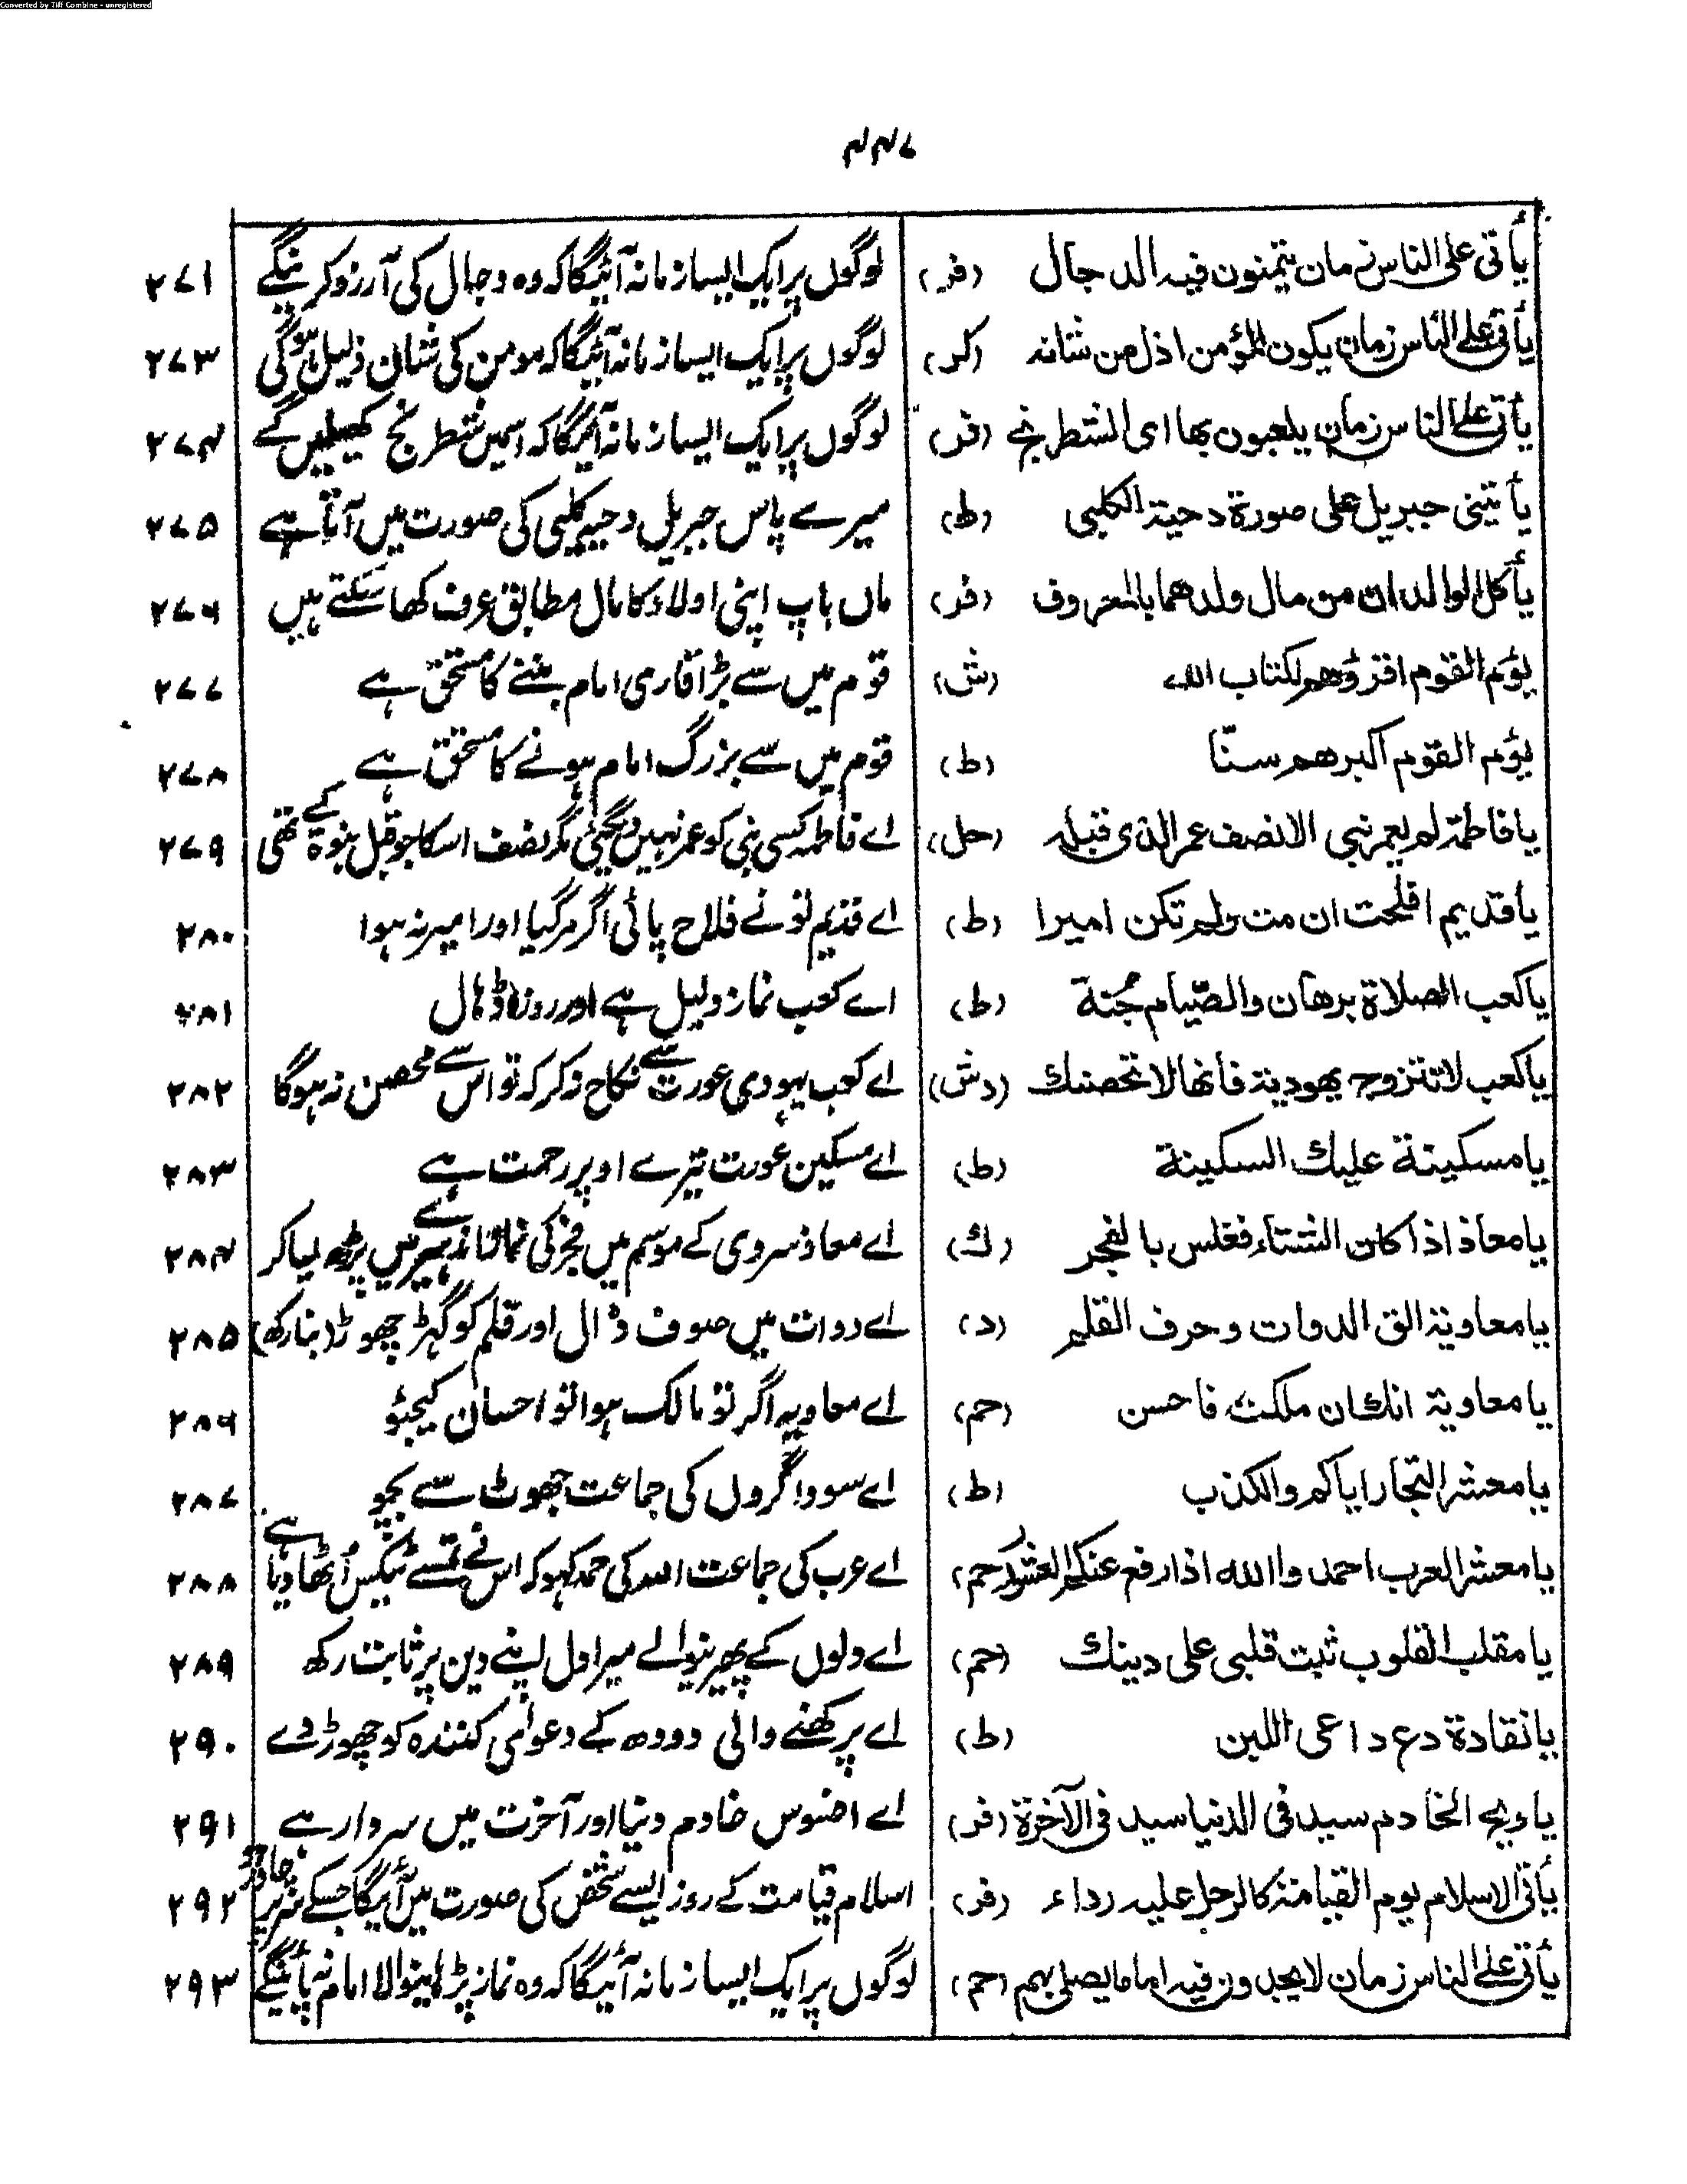 Converted by Tiff Combine - unregistered
۴۴۷
يأتى على الناس زمان يتمنون فيه الدجال (فر) لوگوں پر ایک ایسا زمانہ آئیگا کہ وہ دجال کی آرزو کرینگے ۲۷۱
يأتى على الناس زمان يكون المؤمن اذل من شاته (كر) لوگوں پر ایک ایسا زمانہ آئیگا کہ مومن کی شان ذلیل ہوگی ۲۷۳
يأتى على الناس زمان يلعبون بها اى الشطرنج (فر) لوگوں پر ایک ایسا زمانہ آئیگا کہ اسمیں شطرنج کھیلیں گے ۲۷۴
يأتينى جبريل على صورة دحية الكلبى (ط) میرے پاس جبریل دحیہ کلبی کی صورت میں آتا ہے ۲۷۵
يأكل الوالدان من مال ولدهما بالمعروف (فر) ماں باپ اپنی اولاد کا مال مطابق عرف کھا سکتے ہیں ۲۷۶
يؤم القوم اقرؤهم لكتاب الله (ش) قوم میں سے بڑا قاری امام بننے کا مستحق ہے ۲۷۷
يؤم القوم اكبرهم سنّا (ط) قوم میں سے بزرگ امام ہونے کا مستحق ہے ۲۷۸
يا فاطمة لم يعمر نبى الا نصف عمر الذى قبله (حل) اے فاطمہ کسی نبی کو عمر نہیں دیگئی مگر نصف اسکا جو قبل نبوۃ کے تھی ۲۷۹
يا قديم افلحت ان مت ولم تكن اميرا (ط) اے قدیم تو نے فلاح پائی اگر مرگیا اور امیر نہ ہوا ۲۸۰
يا كعب الصلاة برهان والصّيام جُنة (ط) اے کعب نماز دلیل ہے اور روزہ ڈہال ۲۸۱
يا كعب لا تتزوج يهودية فانها لا تحصنك (دش) اے کعب یہودی عورت سے نکاح نہ کر کہ تو اس سے محصن نہ ہوگا ۲۸۲
يا مسكينة عليك السكينة (ط) اے مسکین عورت تیرے اوپر رحمت ہے ۲۸۳
يا معاذ اذا كان الشتاء فغلس بالفجر (ك) اے معاذ سردی کے موسم میں فجر کی نماز اندہیرے میں پڑھ لیا کر ۲۸۴
يا معاوية الق الدوات وحرف القلم (د) اے دوات میں صوف ڈال اور قلم کو گہڑ چھوڑ (بنا رکھ) ۲۸۵
يا معاوية انك ان ملكت فاحسن (حم) اے معاویہ اگر تو مالک ہوا تو احسان کیجیئو ۲۸۶
يا معشر التجار اياكم والكذب (ط) اے سوداگروں کی جماعت جھوٹ سے بچو ۲۸۷
يا معشر العرب احمدوا الله اذا رفع عنكم العشور (حم) اے عرب کی جماعت اللہ کی حمد کہو کہ اس نے تمسے ٹیکس اُٹھا دیا ہے ۲۸۸
يا مقلب القلوب ثبت قلبى على دينك (حم) اے دلوں کے پھیرنیوالے میرا دل اپنے دین پر ثابت رکھ ۲۸۹
يا نقادة دع داعى اللبن (ط) اے پرکھنے والی دودھ کے دعوای کنندہ کو چھوڑ دے ۲۹۰
يا ويح الخادم سيد فى الدنيا سيد فى الآخرة (فر) اے افسوس خادم دنیا اور آخرت میں سردار ہے ۲۹۱
يأتى الاسلام يوم القيامة كالرجل عليه رداء (فر) اسلام قیامت کے روز ایسے شخص کی صورت میں آئیگا جسکے سر پر چادر ہو ۲۹۲
يأتى على الناس زمان لا يجدون فيه اماما يصلى بهم (حم) لوگوں پر ایک ایسا زمانہ آئیگا کہ وہ نماز پڑہانیوالا امام نہ پائینگے ۲۹۳